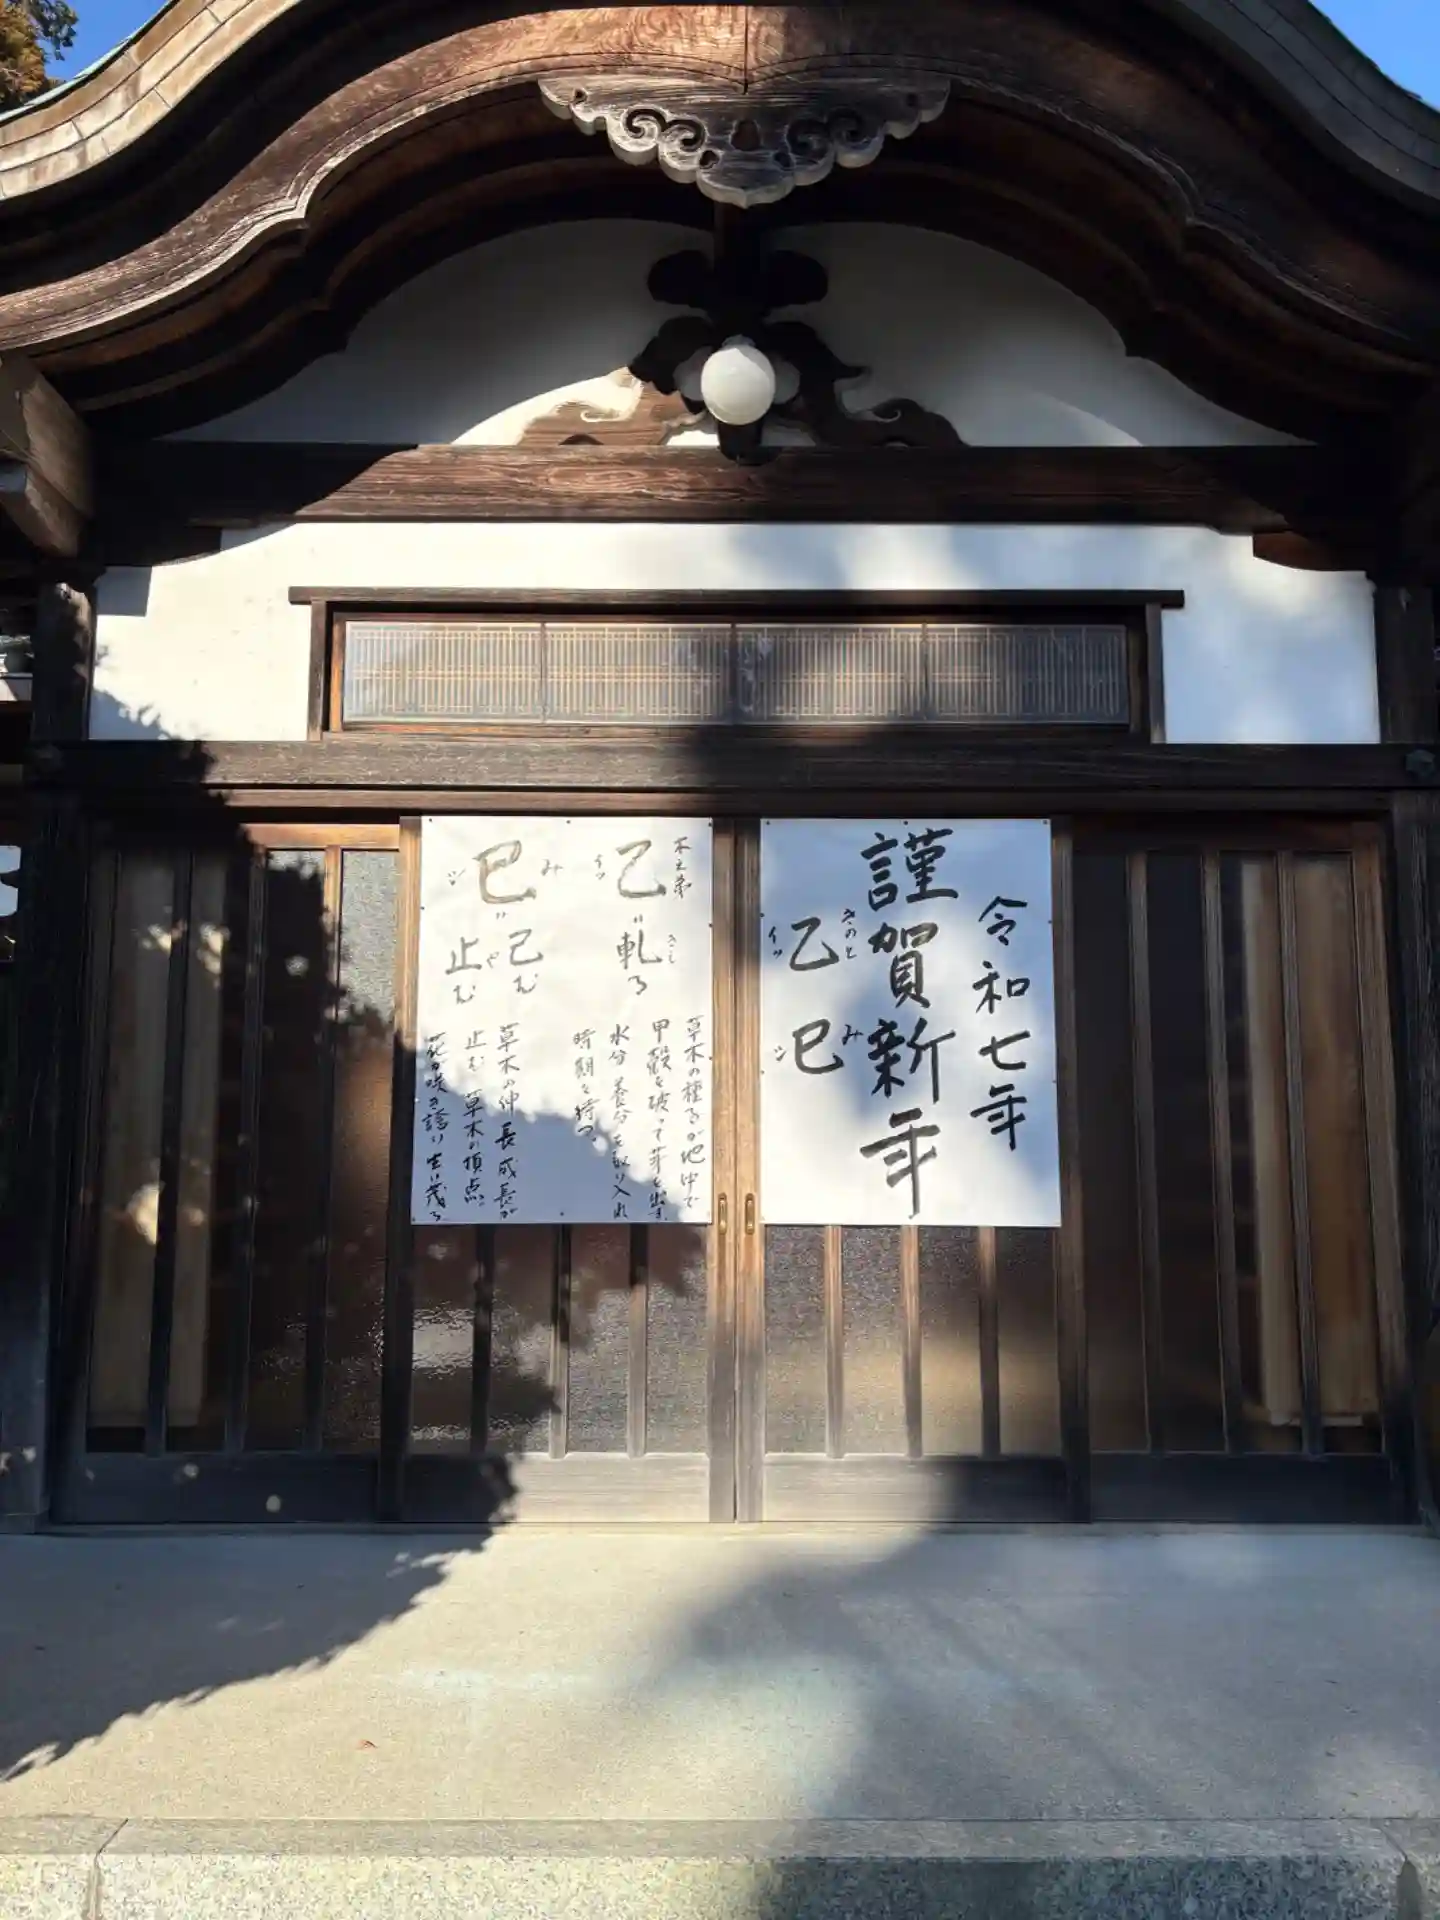 令和七年
謹賀新年
きのと み
乙巳
イツ シ
木之弟
乙〃軋る
イツ きし
草木の種子が地中で
甲殻を破って芽を出す。
水分養分を取り入れ
時期を待つ。
み
巳〃已む
シ や
止む
草木の伸長成長が
止む 草木の頂点。
花が咲き誇り生い茂る